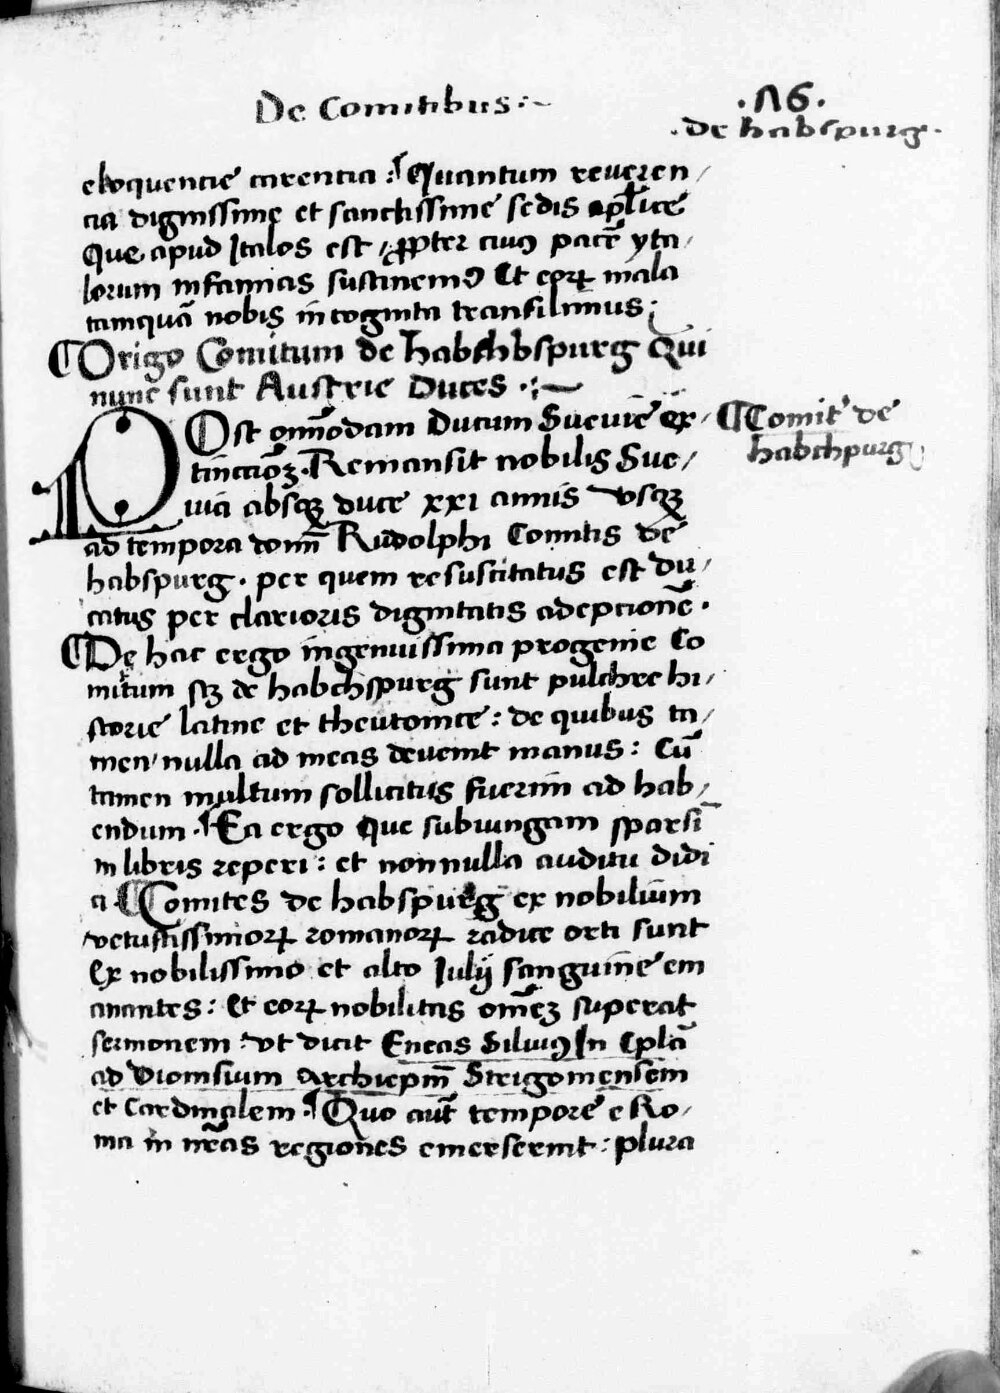 De Comitibus :~
·76·
·de habspurg·
eloquencie carencia : Quantum reueren/
cia dignissime et sanctissime sedis apl̅ice
Que apud Italos est / ꝓpter cuiꝰ pacē yta/
lorum infamias sustinemꝰ Et eoꝝ mala
tamquā nobis incognita transilimus ;
¶ Origo Comitum de habchbspurg Qui
nunc sunt Austrie Duces ·:~
POst om̄odam Ducum Sueuie ex/
tinctionē · Remansit nobilis Sue/
uia absqꝫ duce xxi annis vsqꝫ
ad tempora dom̄ Rudolphi Comitis de
habspurg · per quem resuscitatus est du/
catus per clarioris dignitatis adepcionē ·
¶ De hac ergo ingenuissima progenie Co
mitum sꝫ de habchspurg sunt pulchre hi/
storie latine et theutonice : de quibus ta/
men / nulla ad meas deuenit manus : Cū
tamen multum sollicitus fuerim ad hab/
endum · Ea ergo que subiungam sparsī
in libris reperi : et nonnulla auditu didi
ci · ¶ Comites de habspurg ex nobilium
vetustissimoꝝ romanoꝝ radice orti sunt
ex nobilissimo et alto Iulij sanguine em
anantes : Et eoꝝ nobilitas om̄eꝫ superat
sermonem : vt dicit Eneas Siluiꝰ In Ep̄la
ad Dionisium Archiepm̄ Strigoniensem
et Cardinalem · Quo aut̄ tempore e Ro/
ma in nr̄as regiones emerserint : plura
¶ Comit̄ de
habchpurg